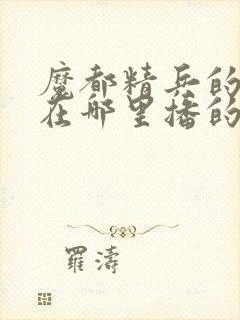 魔都精兵的
在哪里播的
羅濤